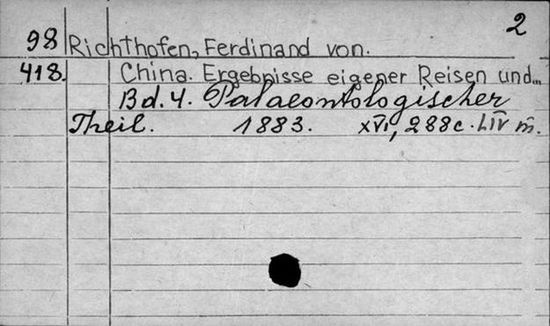 2
98 Richthofen, Ferdinand von.
418. China. Ergebnisse eigener Reisen und...
Bd. 4. Palaeontologischer
Theil. 1883. XVI, 288 c. LIV m.